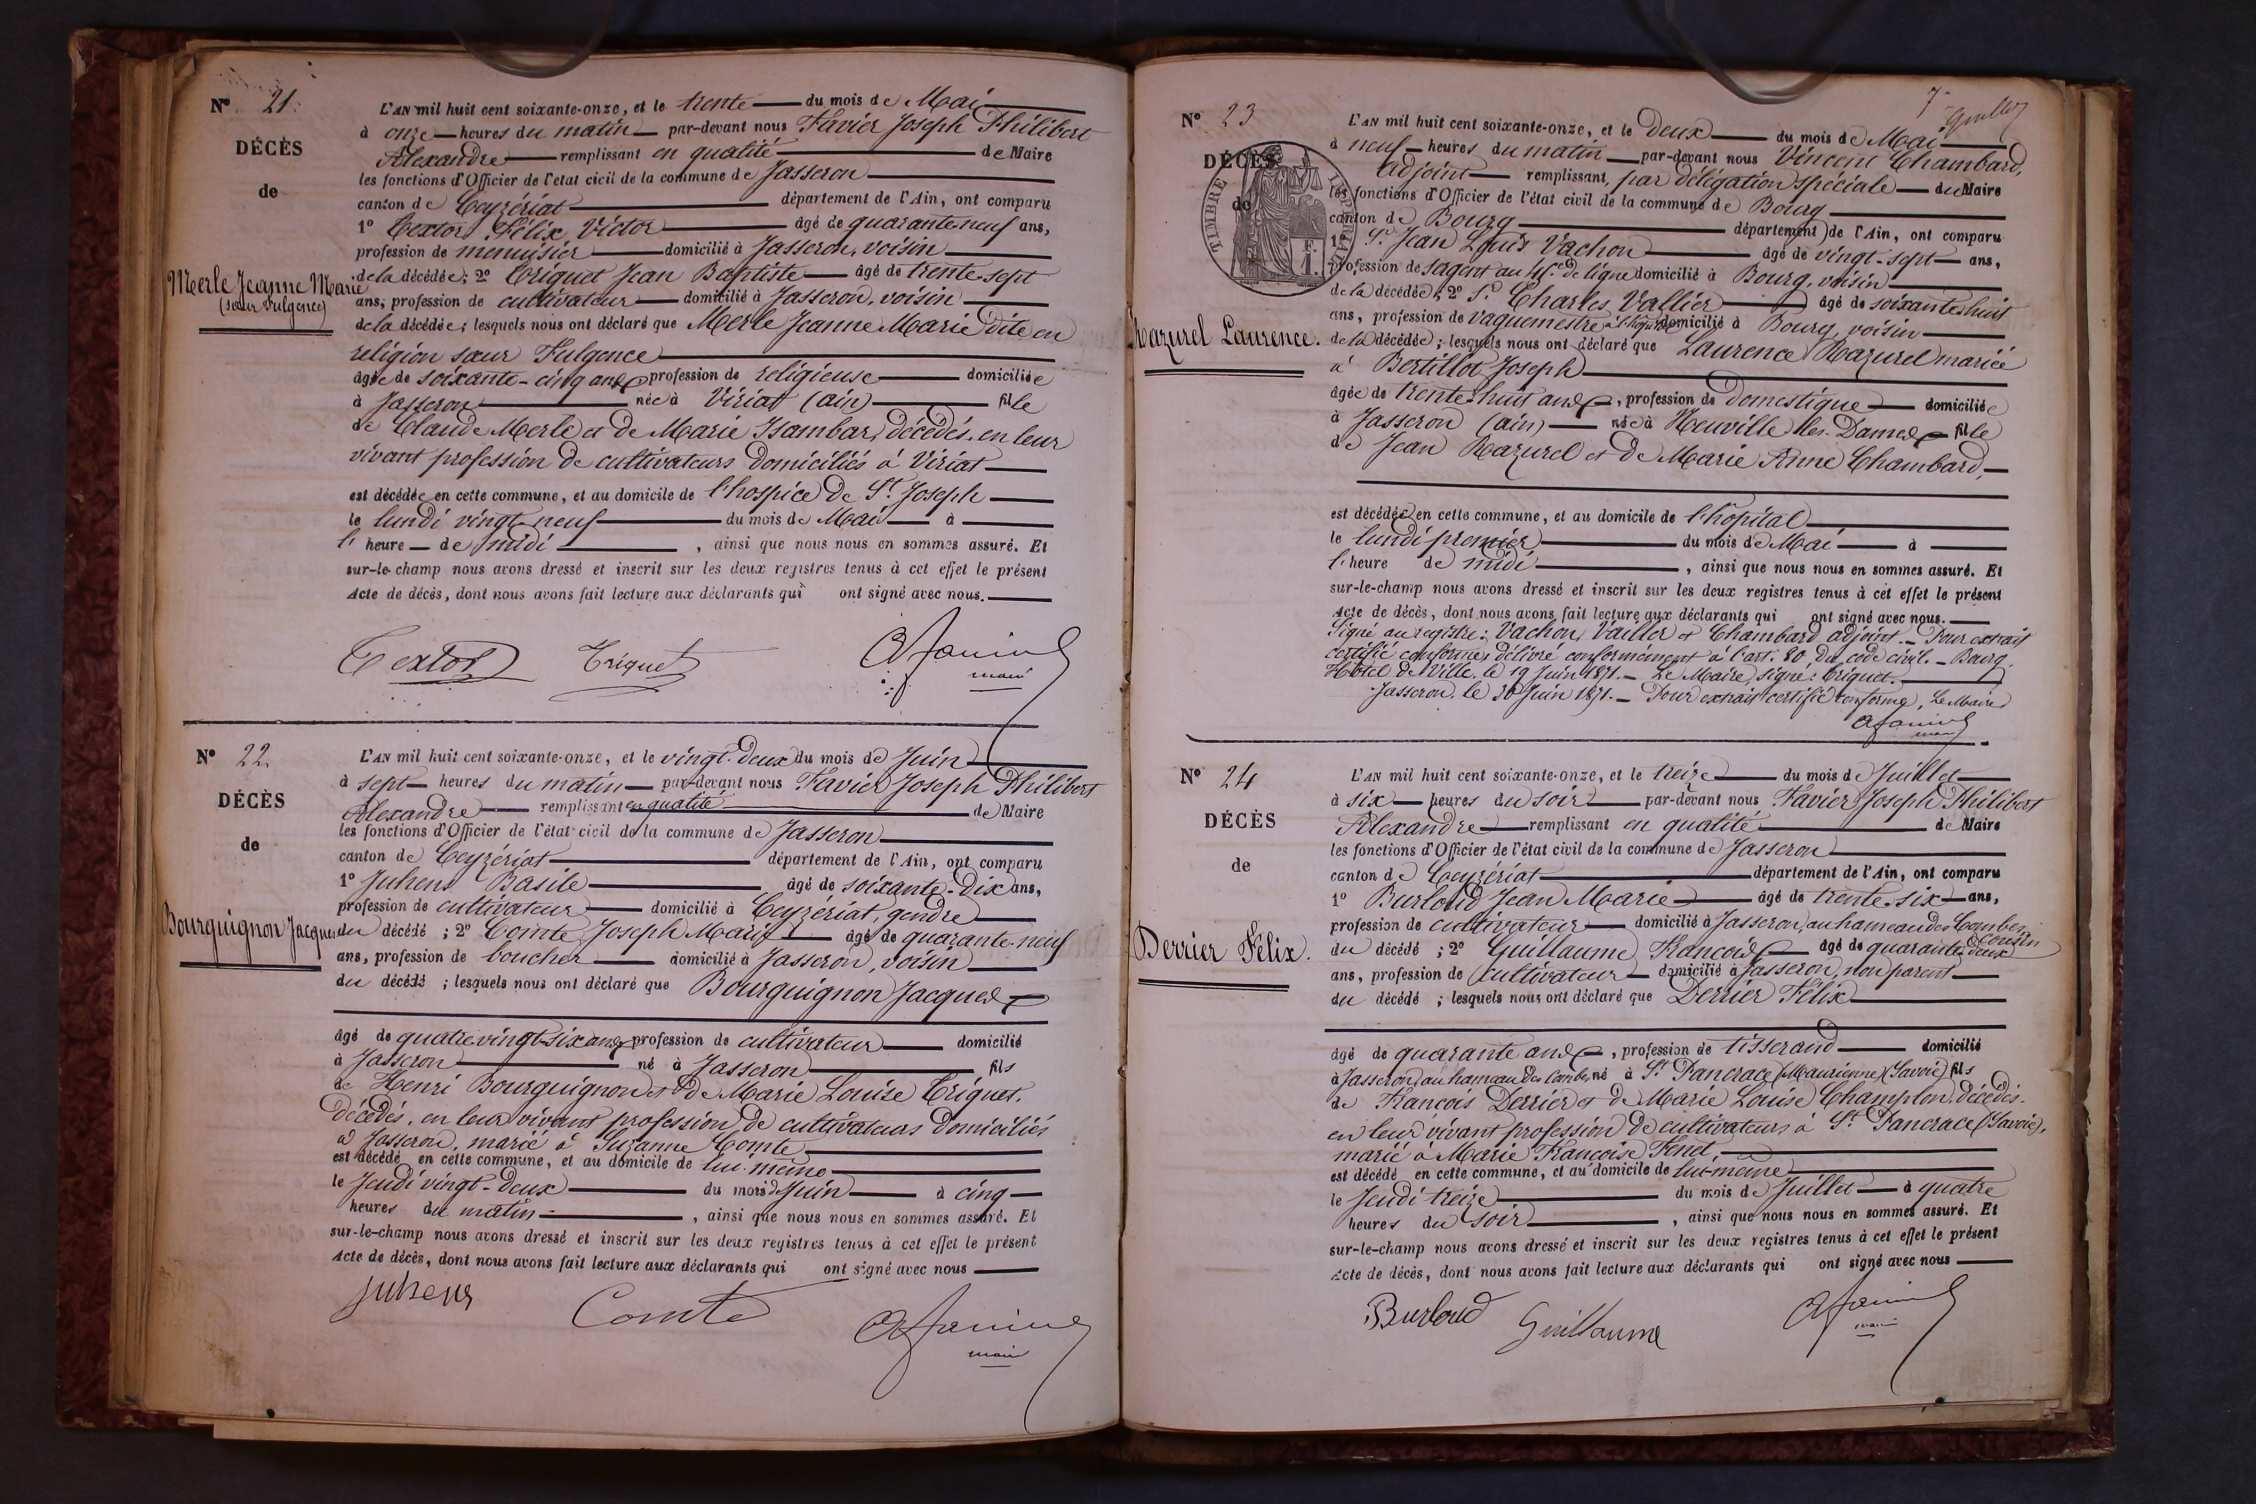 N° 21.
DÉCÈS
de
Merle Jeanne Marie
(sœur Fulgence)
L'AN mil huit cent soixante-onze, et le trente du mois de Mai
à onze heures du matin par-devant nous Favier Joseph Philibert
Alexandre remplissant en qualité de Maire
les fonctions d'Officier de l'état civil de la commune de Jasseron
canton de Ceyzériat département de l'Ain, ont comparu
1° Textor Félix Victor âgé de quarante-neuf ans,
profession de menuisier domicilié à Jasseron, voisin
de la décédée; 2° Triquet Jean Baptiste âgé de trente-sept
ans, profession de cultivateur domicilié à Jasseron, voisin
de la décédée; lesquels nous ont déclaré que Merle Jeanne Marie dite en
religion sœur Fulgence
âgée de soixante-cinq ans profession de religieuse domiciliée
à Jasseron née à Viriat (ain) fille
de Claude Merle et de Marie Isambar, décédés, en leur
vivant profession de cultivateurs domiciliés à Viriat
est décédée en cette commune, et au domicile de l'hospice de St. Joseph
le lundi vingt-neuf du mois de Mai à
l' heure de midi , ainsi que nous nous en sommes assuré. Et
sur-le-champ nous avons dressé et inscrit sur les deux registres tenus à cet effet le présent
Acte de décès, dont nous avons fait lecture aux déclarants qui ont signé avec nous.
Textor Triquet A Favier
maire
N° 22.
DÉCÈS
de
Bourguignon Jacques
L'AN mil huit cent soixante-onze, et le vingt-deux du mois de Juin
à sept heures du matin par-devant nous Favier Joseph Philibert
Alexandre remplissant en qualité de Maire
les fonctions d'Officier de l'état civil de la commune de Jasseron
canton de Ceyzériat département de l'Ain, ont comparu
1° Juhens Basile âgé de soixante-dix ans,
profession de cultivateur domicilié à Ceyzériat, gendre
du décédé ; 2° Comte Joseph Marie âgé de quarante-neuf
ans, profession de boucher domicilié à Jasseron, voisin
du décédé ; lesquels nous ont déclaré que Bourguignon Jacques
âgé de quatrevingt-six ans profession de cultivateur domicilié
à Jasseron né à Jasseron fils
de Henri Bourguignon et de Marie Louise Triquet,
décédés, en leur vivant profession de cultivateurs domiciliés
à Jasseron, marié à Suzanne Comte
est décédé en cette commune, et au domicile de lui-même
le Jeudi vingt-deux du mois de Juin à cinq
heures du matin , ainsi que nous nous en sommes assuré. Et
sur-le-champ nous avons dressé et inscrit sur les deux registres tenus à cet effet le présent
Acte de décès, dont nous avons fait lecture aux déclarants qui ont signé avec nous
Juhens Comte A Favier
maire
7
N° 23
DÉCÈS
de
TIMBRE IMPERIAL
F.
1.
Razurel Laurence.
L'AN mil huit cent soixante-onze, et le Deux du mois de Mai
à neuf heures du matin par-devant nous Vincent Chambard,
adjoint remplissant, par délégation spéciale du Maire
les fonctions d'Officier de l'état civil de la commune de Bourg
canton de Bourg département de l'Ain, ont comparu
1° Sr. Jean Louis Vachon âgé de vingt-sept ans,
profession de sargent au 4e. de ligne domicilié à Bourg, voisin
de la décédée; 2° Sr. Charles Vallier âgé de soixante-huit
ans, profession de vaguemestre à l'hôpital domicilié à Bourg, voisin
de la décédée; lesquels nous ont déclaré que Laurence Razurel mariée
à Bertillot Joseph
âgée de trente-huit ans, profession de domestique domiciliée
à Jasseron (ain) née à Neuville les Dames fille
de Jean Razurel et de Marie Anne Chambard,
est décédée en cette commune, et au domicile de l'hôpital
le lundi premier du mois de Mai à
l'heure de midi , ainsi que nous nous en sommes assuré. Et
sur-le-champ nous avons dressé et inscrit sur les deux registres tenus à cet effet le présent
Acte de décès, dont nous avons fait lecture aux déclarants qui ont signé avec nous.
Signé au registre: Vachon, Vailler et Chambard adjoint. Pour extrait
certifié conforme, délivré conformément à l'art. 80 du code civil. Bourg.
Hôtel de Ville, le 19 Juin 1871. Le Maire, signé: Triquet.
Jasseron, le 30 Juin 1871. Pour extrait certifié conforme, Le Maire
A Favier
maire
N° 24
DÉCÈS
de
Derrier Félix.
L'AN mil huit cent soixante-onze, et le treize du mois de Juillet
à six heures du soir par-devant nous Favier Joseph Philibert
Alexandre remplissant en qualité de Maire
les fonctions d'Officier de l'état civil de la commune de Jasseron
canton de Ceyzériat département de l'Ain, ont comparu
1° Burloud Jean Marie âgé de trente-six ans,
profession de cultivateur domicilié à Jasseron, au hameau des Combes, cousin
du décédé ; 2° Guillaume François âgé de quarante-deux
ans, profession de cultivateur domicilié à Jasseron, non parent
du décédé ; lesquels nous ont déclaré que Derrier Félix
âgé de quarante ans, profession de tisserand domicilié
à Jasseron, au hameau des Combes né à St. Pancrace (Maurienne) (Savoie) fils
de François Derrier et de Marie Louise Champlon, décédés,
en leur vivant profession de cultivateurs à St. Pancrace (Savoie),
marié à Marie Françoise Fenet,
est décédé en cette commune, et au domicile de lui-même
le Jeudi treize du mois de Juillet à quatre
heures du soir , ainsi que nous nous en sommes assuré. Et
sur-le-champ nous avons dressé et inscrit sur les deux registres tenus à cet effet le présent
Acte de décès, dont nous avons fait lecture aux déclarants qui ont signé avec nous
Burloud Guillaume A Favier
maire